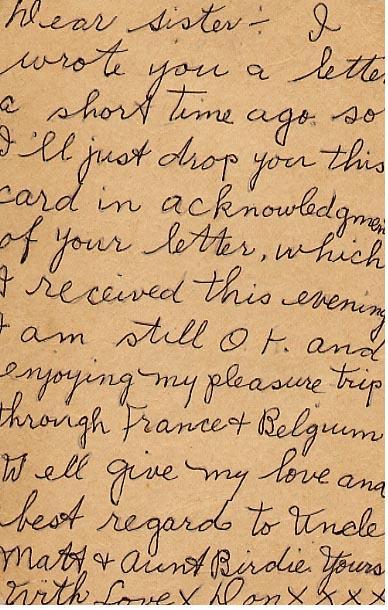 Dear sister:- I
wrote you a letter
a short time ago so
I'll just drop you this
card in acknowledgmen
of your letter, which
I received this evening
I am still O.K. and
enjoying my pleasure trip
through France & Belgium
Well give my love and
best regard to Uncle
Matt & Aunt Birdie. Yours
With Love X Don X X X X